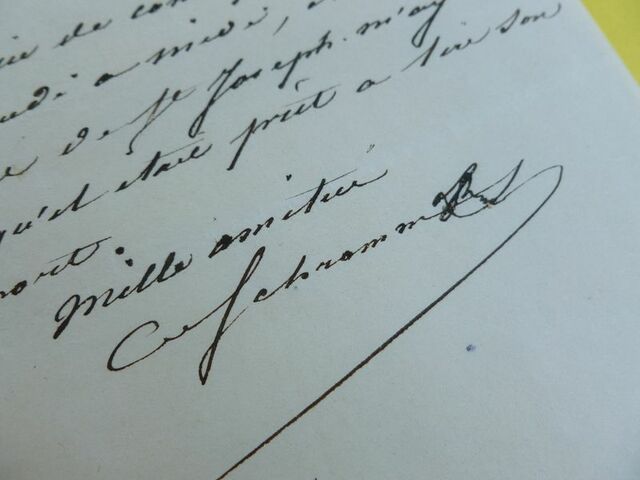 de con
a midi,
de St Joseph. m'ay
qu'il était prêt a lire son
port.
Mille amitiés
Schramm